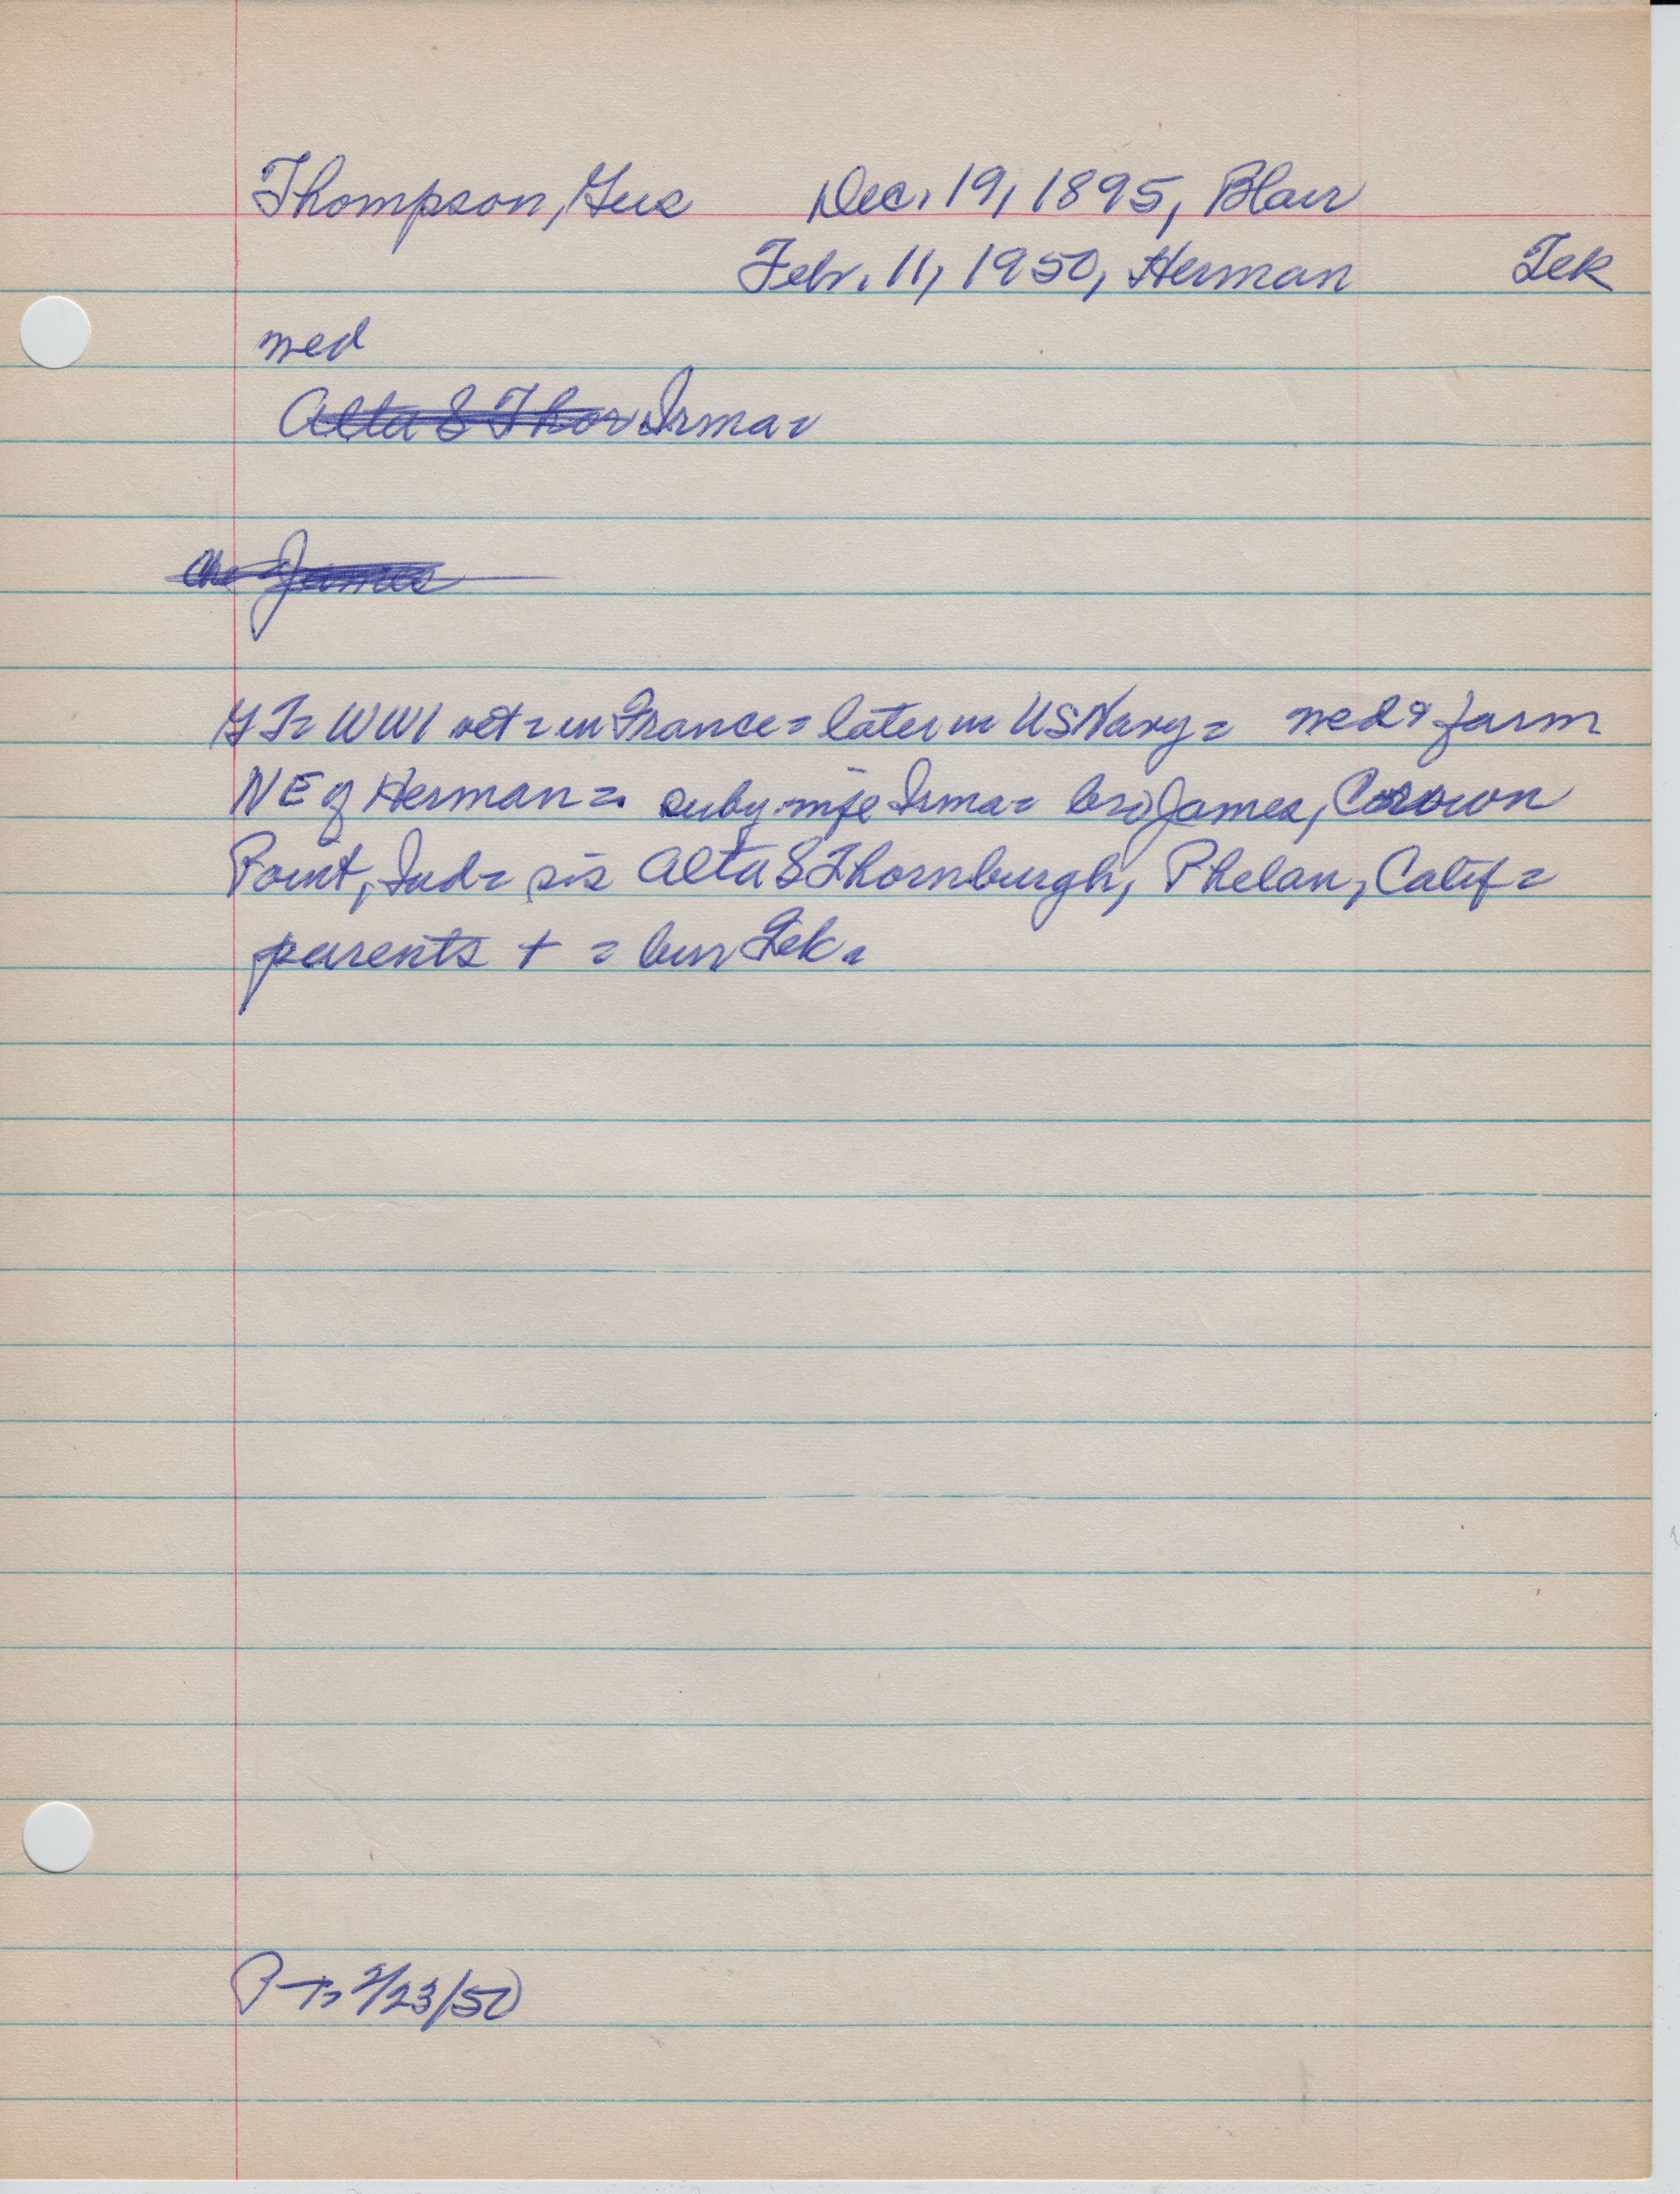 Thompson, Gus Dec. 19, 1895, Blair
Febr. 11, 1950, Herman Tek
med
Alta S Thor Irma =
Ch James
GT = WWI vet = in France = later in US Navy = med & farm
NE of Herman = surby wife Irma = bro James, Crown
Point, Ind = sis Alta S Thornburgh, Phelan, Calif =
parents + = bur Tek =
P-T = 2/23/50